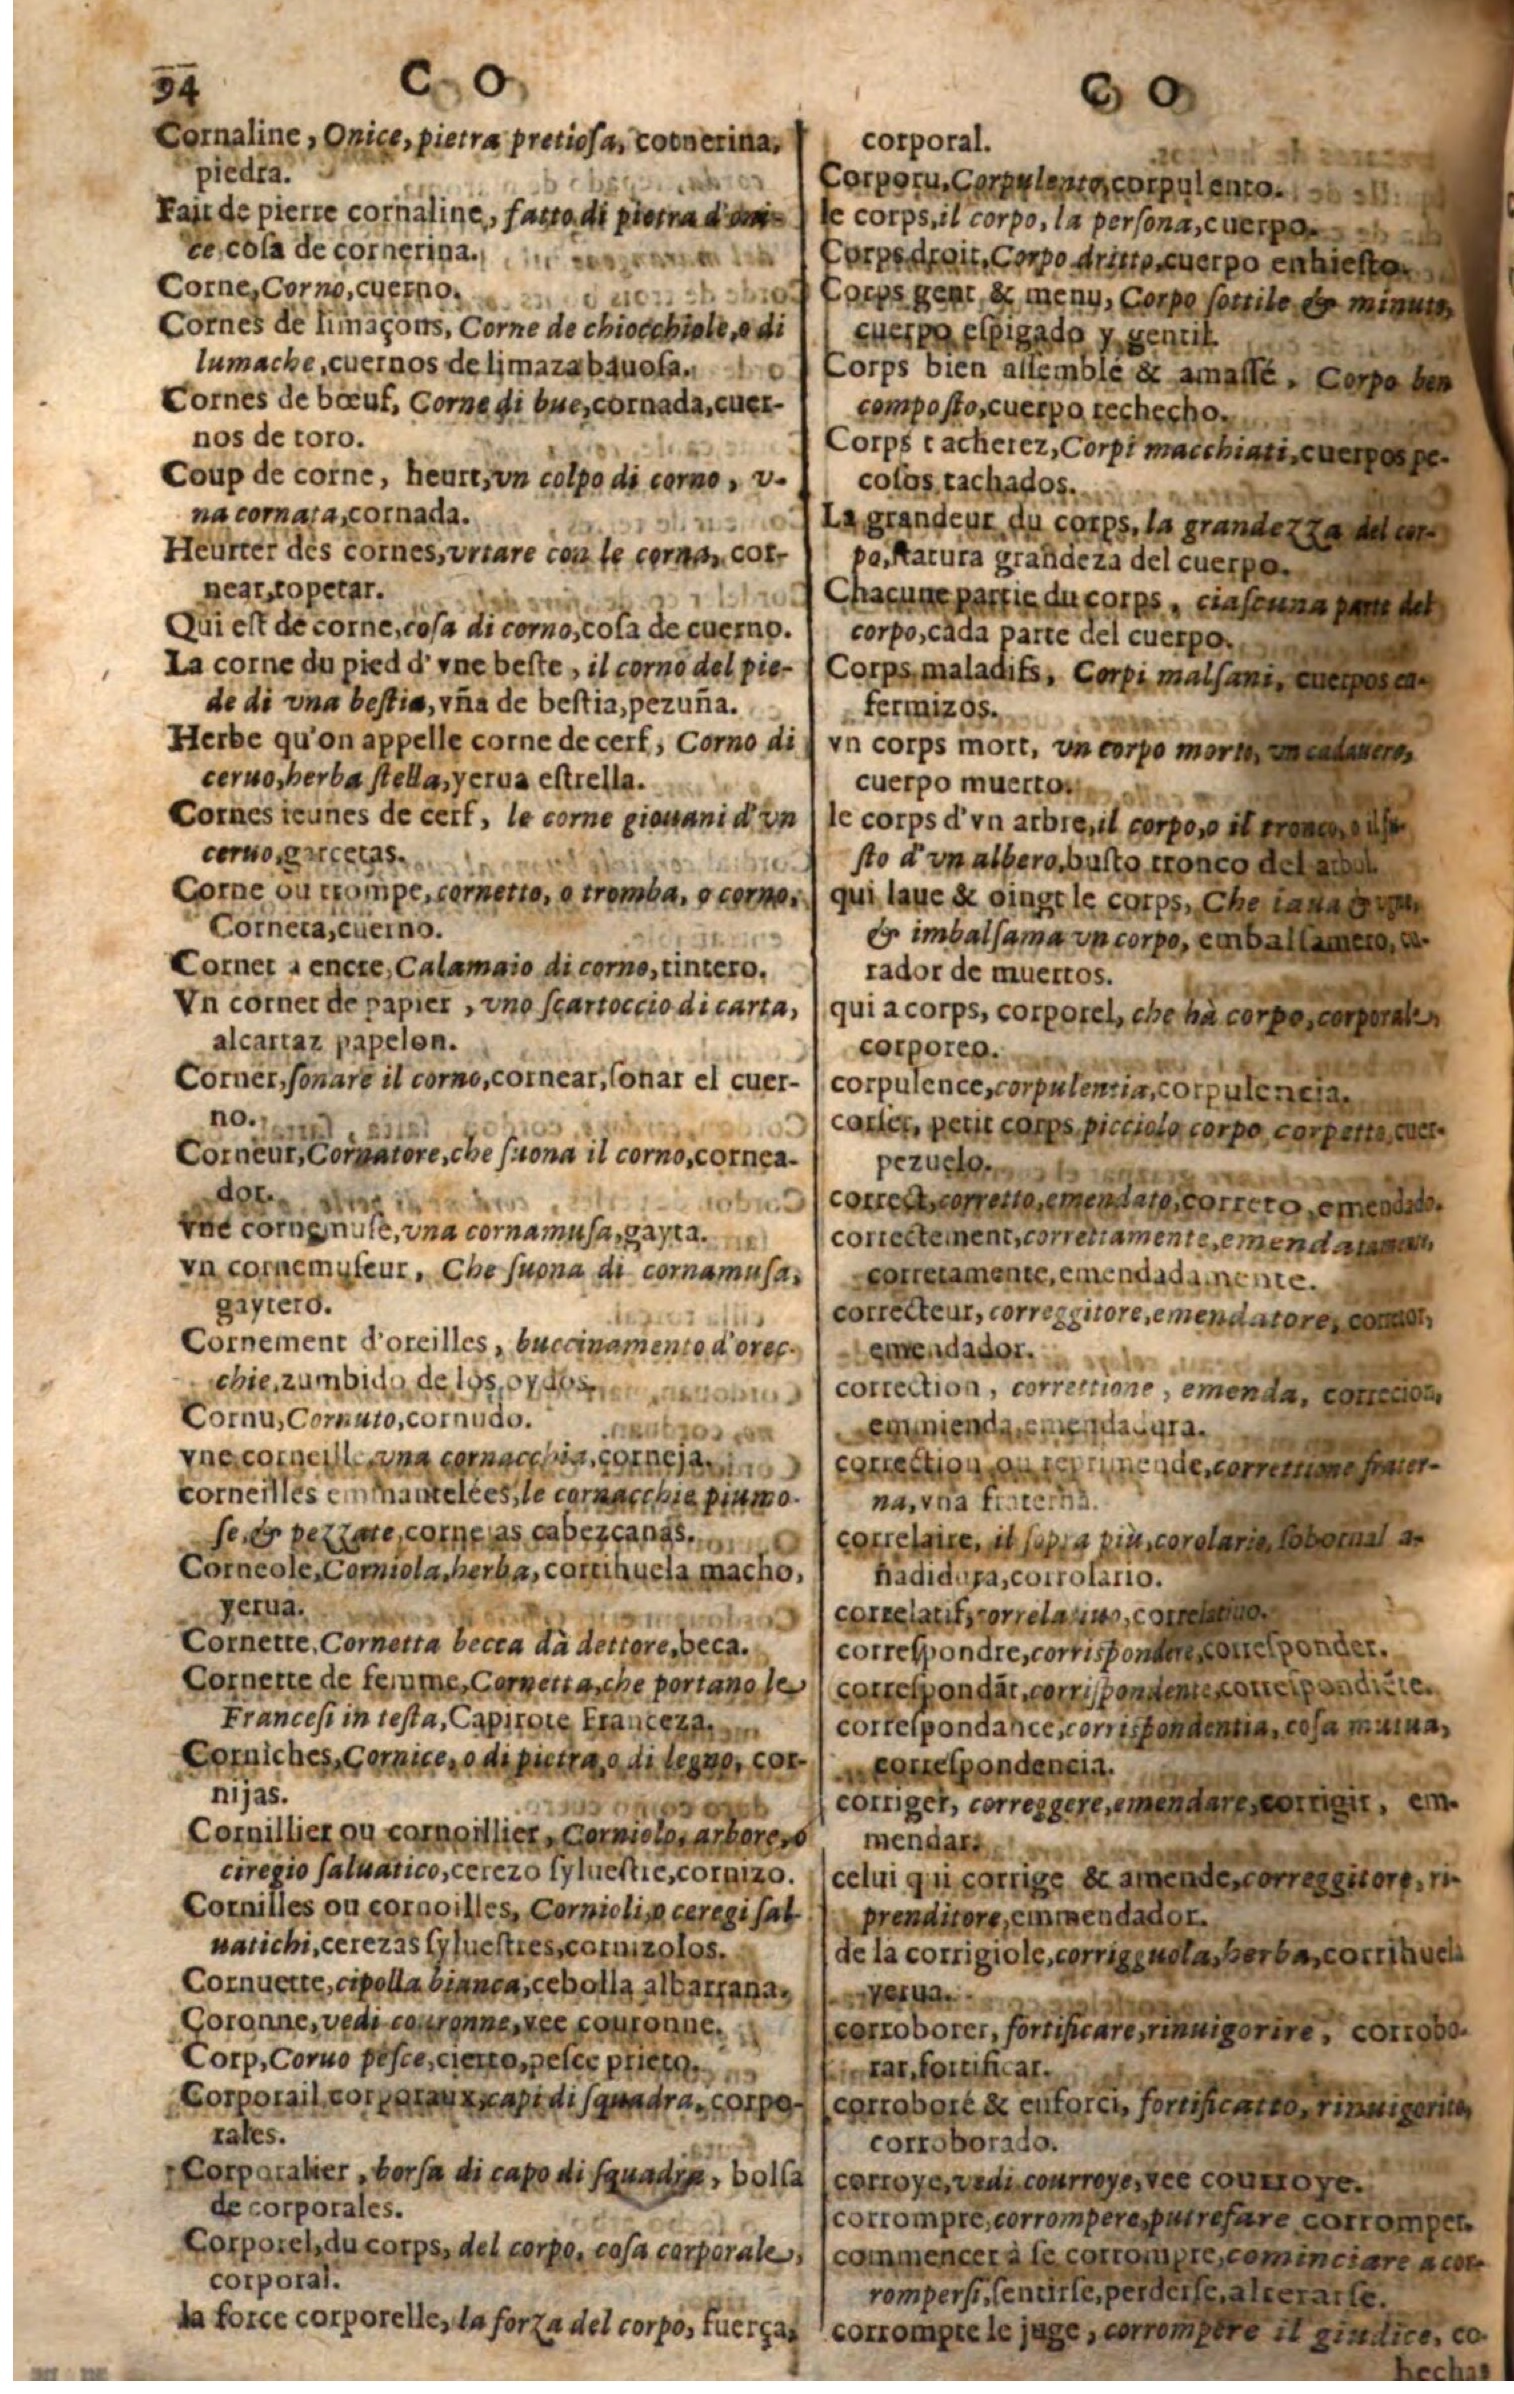 94
C O
Cornaline, Onice, pietra pretiosa, cornerina,
piedra.
Fait de pierre cornaline, fatto di pietra d'oni-
ce, cosa de cornerina.
Corne, Corno, cuerno.
Cornes de limaçons, Corne de chiocchiole, o di
lumache, cuernos de limaza bauosa.
Cornes de bœuf, Corne di bue, cornada, cuer-
nos de toro.
Coup de corne, heurt, vn colpo di corno, v-
na cornata, cornada.
Heurter des cornes, vrtare con le corna, cor-
near, topetar.
Qui est de corne, cosa di corno, cosa de cuerno.
La corne du pied d'vne beste, il corno del pie-
de di vna bestia, vña de bestia, pezuña.
Herbe qu'on appelle corne de cerf, Corno di
ceruo, herba stella, yerua estrella.
Cornes ieunes de cerf, le corne giouani d'vn
ceruo, garcetas.
Corne ou trompe, cornetto, o tromba, o corno,
Corneta, cuerno.
Cornet a encre, Calamaio di corno, tintero.
Vn cornet de papier, vno scartoccio di carta,
alcartaz papelon.
Corner, sonare il corno, cornear, sonar el cuer-
no.
Corneur, Cornatore, che suona il corno, cornea-
dor.
vne cornemuse, vna cornamusa, gayta.
vn cornemuseur, Che suona di cornamusa,
gaytero.
Cornement d'oreilles, buccinamento d'orec-
chie, zumbido de los oydos.
Cornu, Cornuto, cornudo.
vne corneille, vna cornacchia, corneja.
corneilles emmantelées, le cornacchie piumo-
se, & pezzate, cornejas cabezcanas.
Corneole, Corniola, herba, corrihuela macho,
yerua.
Cornette, Cornetta becca dà dottore, beca.
Cornette de femme, Cornetta, che portano le
Francesi in testa, Capirote Franceza.
Corniches, Cornice, o di pietra, o di legno, cor-
nijas.
Cornillier ou cornoillier, Corniolo, arbore, ò
ciregio saluatico, cerezo syluestre, cornizo.
Cornilles ou cornoilles, Cornioli, o ceregi sal-
uatichi, cerezas syluestres, cornizolos.
Cornuette, cipolla bianca, cebolla albarrana.
Coronne, vedi couronne, vee couronne.
Corp, Coruo pesce, cierto, pesce prieto.
Corporail corporaux, capi di squadra, corpo-
rales.
Corporalier, borsa di capo di squadra, bolsa
de corporales.
Corporel, du corps, del corpo, cosa corporale,
corporal.
la force corporelle, la forza del corpo, fuerça,
C O
corporal.
Corporu, Corpulento, corpulento.
le corps, il corpo, la persona, cuerpo.
Corps droit, Corpo dritto, cuerpo enhiesto.
Corps gent & menu, Corpo sottile & minuto,
cuerpo espigado y gentil.
Corps bien assemblé & amassé, Corpo ben
composto, cuerpo rechecho.
Corps tacherez, Corpi macchiati, cuerpos pe-
cosos tachados.
La grandeur du corps, la grandezza del cor-
po, statura grandeza del cuerpo.
Chacune partie du corps, ciascuna parte del
corpo, cada parte del cuerpo.
Corps maladifs, Corpi malsani, cuerpos en-
fermizos.
vn corps mort, vn corpo morto, vn cadauero,
cuerpo muerto.
le corps d'vn arbre, il corpo, o il tronco, o il fu-
sto d'vn albero, busto tronco del arbol.
qui laue & oingt le corps, Che laua &
& imbalsama vn corpo, embalsamero, cu-
rador de muertos.
qui a corps, corporel, che hà corpo, corporale,
corporeo.
corpulence, corpulentia, corpulencia.
corset, petit corps picciolo corpo corpetto, cuer-
pezuelo.
correct, corretto, emendato, correto, emendado.
correctement, correttamente, emendatamente,
corretamente, emendadamente.
correcteur, correggitore, emendatore, corretor,
emendador.
correction, correttione, emenda, correcion,
emmienda, emendadura.
correction ou reprimende, correttione frater-
na, vna fraterna.
correlaire, il sopra più, corolario, sobornal a-
ñadidura, corrolario.
correlatif, correlatiuo, correlatiuo.
correspondre, corrispondere, corresponder.
correspondãt, corrispondente, correspondiẽte.
correspondance, corrispondentia, cosa mutua,
correspondencia.
corriger, correggere, emendare, corrigir, em-
mendar.
celui qui corrige & amende, correggitore, ri-
prenditore, emmendador.
de la corrigiole, corrigguola, herba, corrihuela
yerua.
corroborer, fortificare, rinuigorire, corrobo-
rar, fortificar.
corroboré & enforci, fortificatto, rinuigorito,
corroborado.
corroye, vedi courroye, vee courroye.
corrompre, corrompere, putrefare corromper.
commencer à se corrompre, cominciare a cor-
rompersi, sentirse, perderse, alterarse.
corrompre le juge, corrompere il giudice, co-
hechar